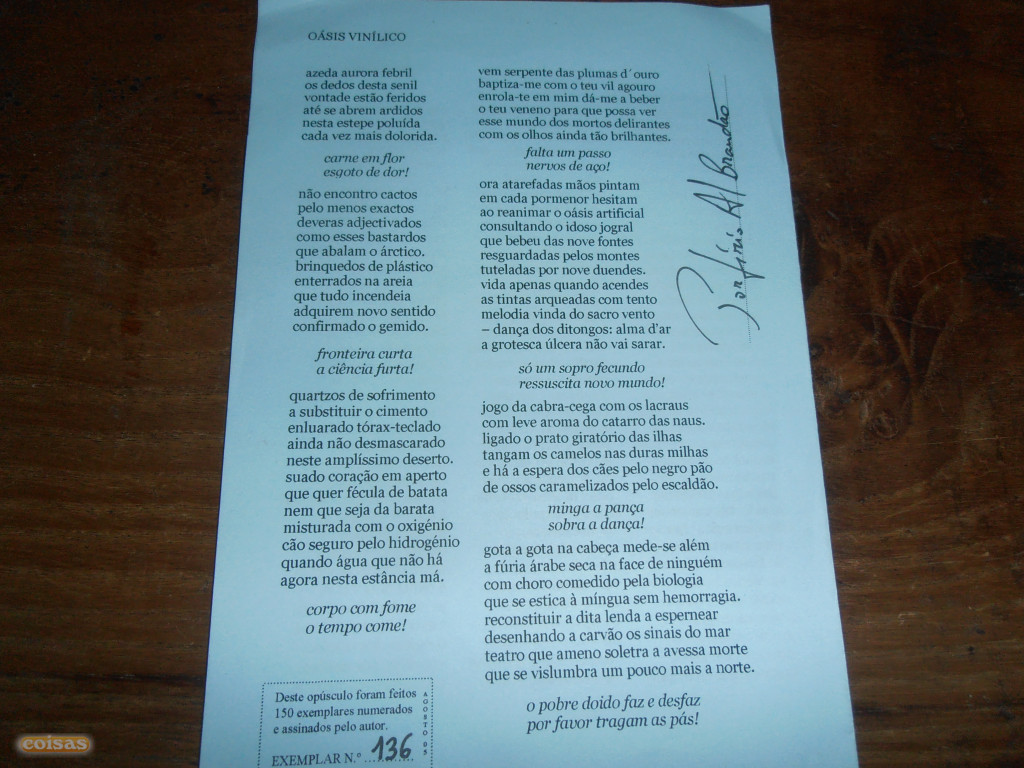 OÁSIS VINÍLICO
azeda aurora febril
os dedos desta senil
vontade estão feridos
até se abrem ardidos
nesta estepe poluída
cada vez mais dolorida.
carne em flor
esgoto de dor!
não encontro cactos
pelo menos exactos
deveras adjectivados
como esses bastardos
que abalam o árctico.
brinquedos de plástico
enterrados na areia
que tudo incendeia
adquirem novo sentido
confirmado o gemido.
fronteira curta
a ciência furta!
quartzos de sofrimento
a substituir o cimento
enluarado tórax-teclado
ainda não desmascarado
neste amplíssimo deserto.
suado coração em aperto
que quer fécula de batata
nem que seja da barata
misturada com o oxigénio
cão seguro pelo hidrogénio
quando água que não há
agora nesta estância má.
corpo com fome
o tempo come!
vem serpente das plumas d´ouro
baptiza-me com o teu vil agouro
enrola-te em mim dá-me a beber
o teu veneno para que possa ver
esse mundo dos mortos delirantes
com os olhos ainda tão brilhantes.
falta um passo
nervos de aço!
ora atarefadas mãos pintam
em cada pormenor hesitam
ao reanimar o oásis artificial
consultando o idoso jogral
que bebeu das nove fontes
resguardadas pelos montes
tuteladas por nove duendes.
vida apenas quando acendes
as tintas arqueadas com tento
melodia vinda do sacro vento
– dança dos ditongos: alma d'ar
a grotesca úlcera não vai sarar.
só um sopro fecundo
ressuscita novo mundo!
jogo da cabra-cega com os lacraus
com leve aroma do catarro das naus.
ligado o prato giratório das ilhas
tangam os camelos nas duras milhas
e há a espera dos cães pelo negro pão
de ossos caramelizados pelo escaldão.
minga a pança
sobra a dança!
gota a gota na cabeça mede-se além
a fúria árabe seca na face de ninguém
com choro comedido pela biologia
que se estica à míngua sem hemorragia.
reconstituir a dita lenda a espernear
desenhando a carvão os sinais do mar
teatro que ameno soletra a avessa morte
que se vislumbra um pouco mais a norte.
o pobre doido faz e desfaz
por favor tragam as pás!
Porfírio Al Brandão
Deste opúsculo foram feitos
150 exemplares numerados
e assinados pelo autor.
EXEMPLAR N.º 136
AGOSTO 05
coisas